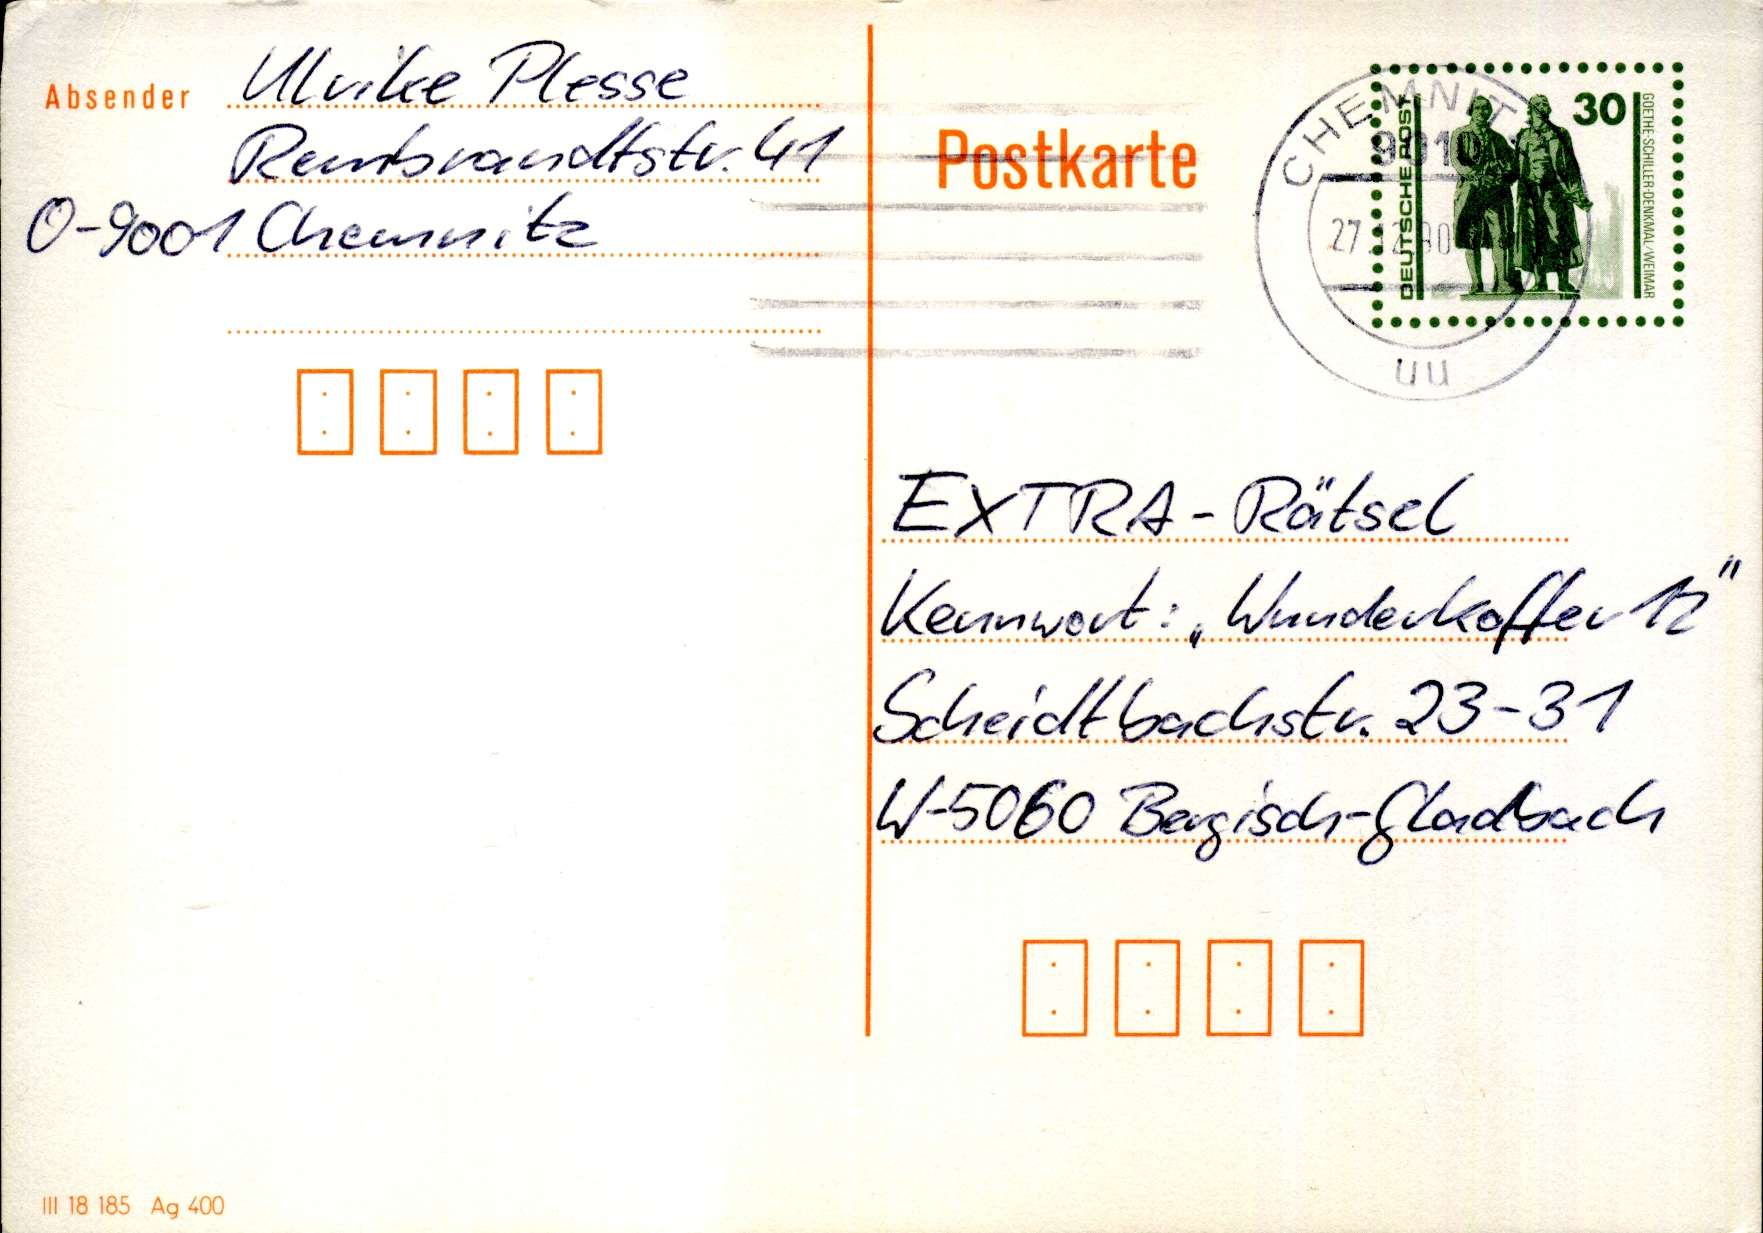 Absender Ulrike Plesse
Rembrandtstr. 41
O-9001 Chemnitz
III 18 185 Ag 400
Postkarte
CHEMNITZ
9010
27.12.90
uu
DEUTSCHE POST
30
GOETHE-SCHILLER-DENKMAL/WEIMAR
EXTRA-Rätsel
Kennwort: „Wunderkoffer 12"
Scheidtbachstr. 23-31
W-5060 Bergisch-Gladbach